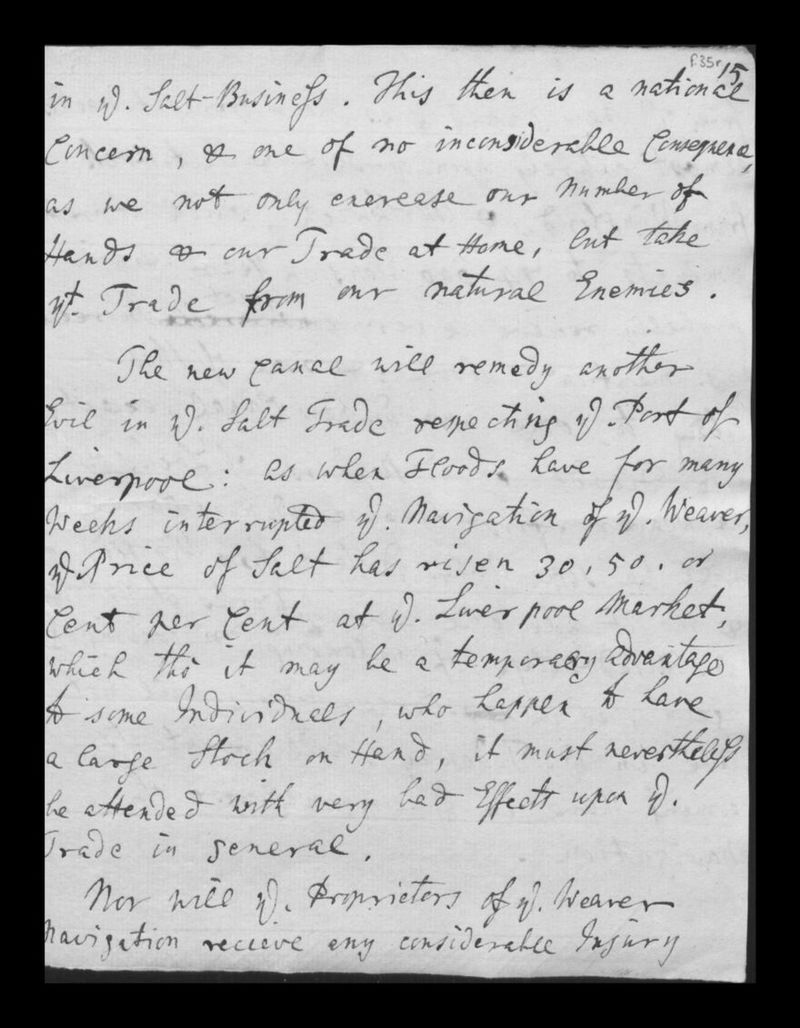 f.35r 15
in ye. Salt-Business. This then is a national
Concern, & one of no inconsiderable Consequence,
as we not only encrease our Number of
Hands & our Trade at Home, but take
yt. Trade from our natural Enemies.
The new Canal will remedy another
Evil in ye. Salt Trade respecting ye. Port of
Liverpool: as when Floods have for many
Weeks interrupted ye. Navigation of ye. Weaver,
ye Price of Salt has risen 30, 50. or
Cent per Cent at ye. Liverpool Market,
which tho' it may be a temporary advantage
to some Individuals, who happen to have
a large Stock on Hand, it must nevertheless
be attended with very bad Effects upon ye.
Trade in general.
Nor will ye. Proprietors of ye. Weaver
Navigation recieve any considerable Injury